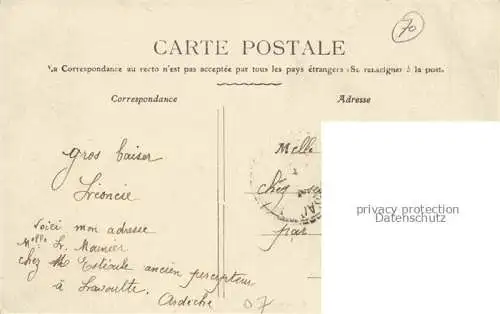 70
CARTE POSTALE
La Correspondance au recto n'est pas acceptée par tous les pays étrangers (Se renseigner à la poste
Correspondance
Adresse
gros baiser
Léoncie
Voici mon adresse
Melle L. Mounier
chez Me Estéoule ancien percepteur
à Lavoulte.
Ardèche
07
Melle
chez
par
privacy protection
Datenschutz